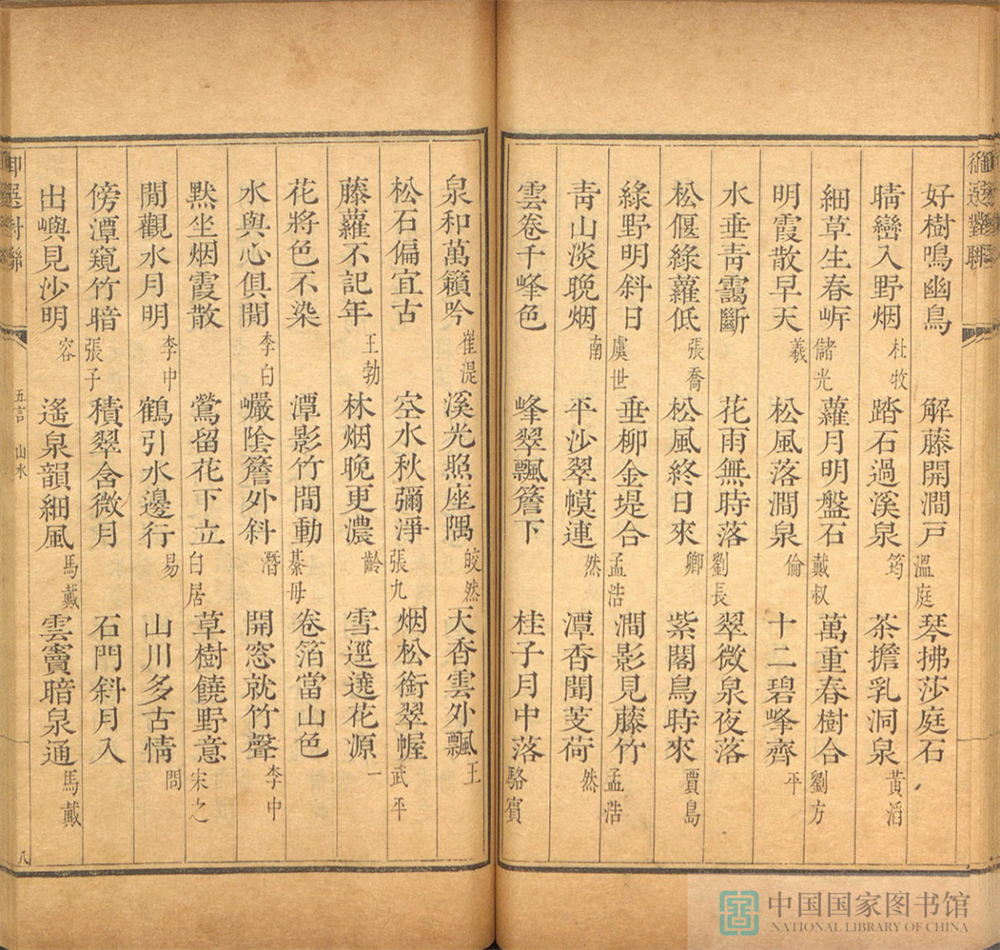 御選對聯
好樹鳴幽鳥 解藤開澗戸 溫庭 琴拂莎庭石
晴巒入野烟 杜牧 踏石過溪泉 筠 茶擔乳洞泉 黃滔
細草生春㟁 儲光 蘿月明盤石 戴叔 萬重春樹合 劉方
明霞散早天 羲 松風落澗泉 倫 十二碧峰齊 平
水垂青靄斷 花雨無時落 劉長 翠微泉夜落
松偃綠蘿低 張喬 松風終日來 卿 紫閣鳥時來 賈島
綠野明斜日 虞世 垂柳金堤合 孟浩 澗影見藤竹 孟浩
青山淡晚烟 南 平沙翠幙連 然 潭香聞芰荷 然
雲卷千峰色 峰翠飄簷下 桂子月中落 駱賓
泉和萬籟吟 崔湜 溪光照座隅 皎然 天香雲外飄 王
松石偏宜古 空水秋彌淨 張九 烟松銜翠幄 武平
藤蘿不記年 王勃 林烟晚更濃 齡 雪逕遶花源 一
花將色不染 潭影竹間動 綦毋 卷箔當山色
水與心俱閒 李白 巖陰簷外斜 潛 開窓就竹聲 李中
默坐烟霞散 鶯留花下立 白居 草樹饒野意 宋之
閒觀水月明 李中 鶴引水邊行 易 山川多古情 問
傍潭窺竹暗 張子 積翠含微月 石門斜月入
出嶼見沙明 容 遙泉韻細風 馬戴 雲竇暗泉通 馬戴
御選對聯 五言 山水 八
中国国家图书馆
NATIONAL LIBRARY OF CHINA